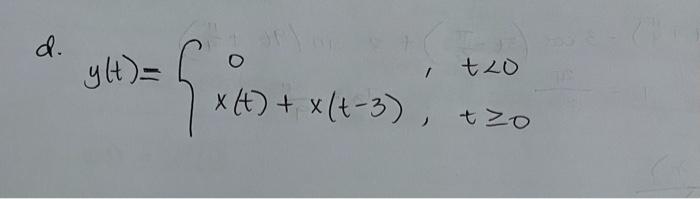 d.
y(t) = { 0 , t<0
x(t) + x(t-3) , t≥0